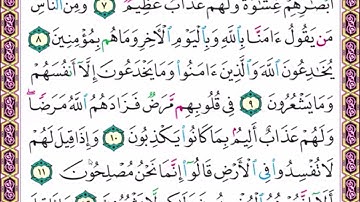 أَبْصَٰرِهِمْ غِشَٰوَةٌ وَلَهُمْ عَذَابٌ عَظِيمٌ ٧ وَمِنَ ٱلنَّاسِ
مَن يَقُولُ ءَامَنَّا بِٱللَّهِ وَبِٱلْيَوْمِ ٱلْءَاخِرِ وَمَا هُم بِمُؤْمِنِينَ ٨
يُخَٰدِعُونَ ٱللَّهَ وَٱلَّذِينَ ءَامَنُوا۟ وَمَا يَخْدَعُونَ إِلَّآ أَنفُسَهُمْ
وَمَا يَشْعُرُونَ ٩ فِى قُلُوبِهِم مَّرَضٌ فَزَادَهُمُ ٱللَّهُ مَرَضًا
وَلَهُمْ عَذَابٌ أَلِيمٌۢ بِمَا كَانُوا۟ يَكْذِبُونَ ١٠ وَإِذَا قِيلَ لَهُمْ
لَا تُفْسِدُوا۟ فِى ٱلْأَرْضِ قَالُوٓا۟ إِنَّمَا نَحْنُ مُصْلِحُونَ ١١